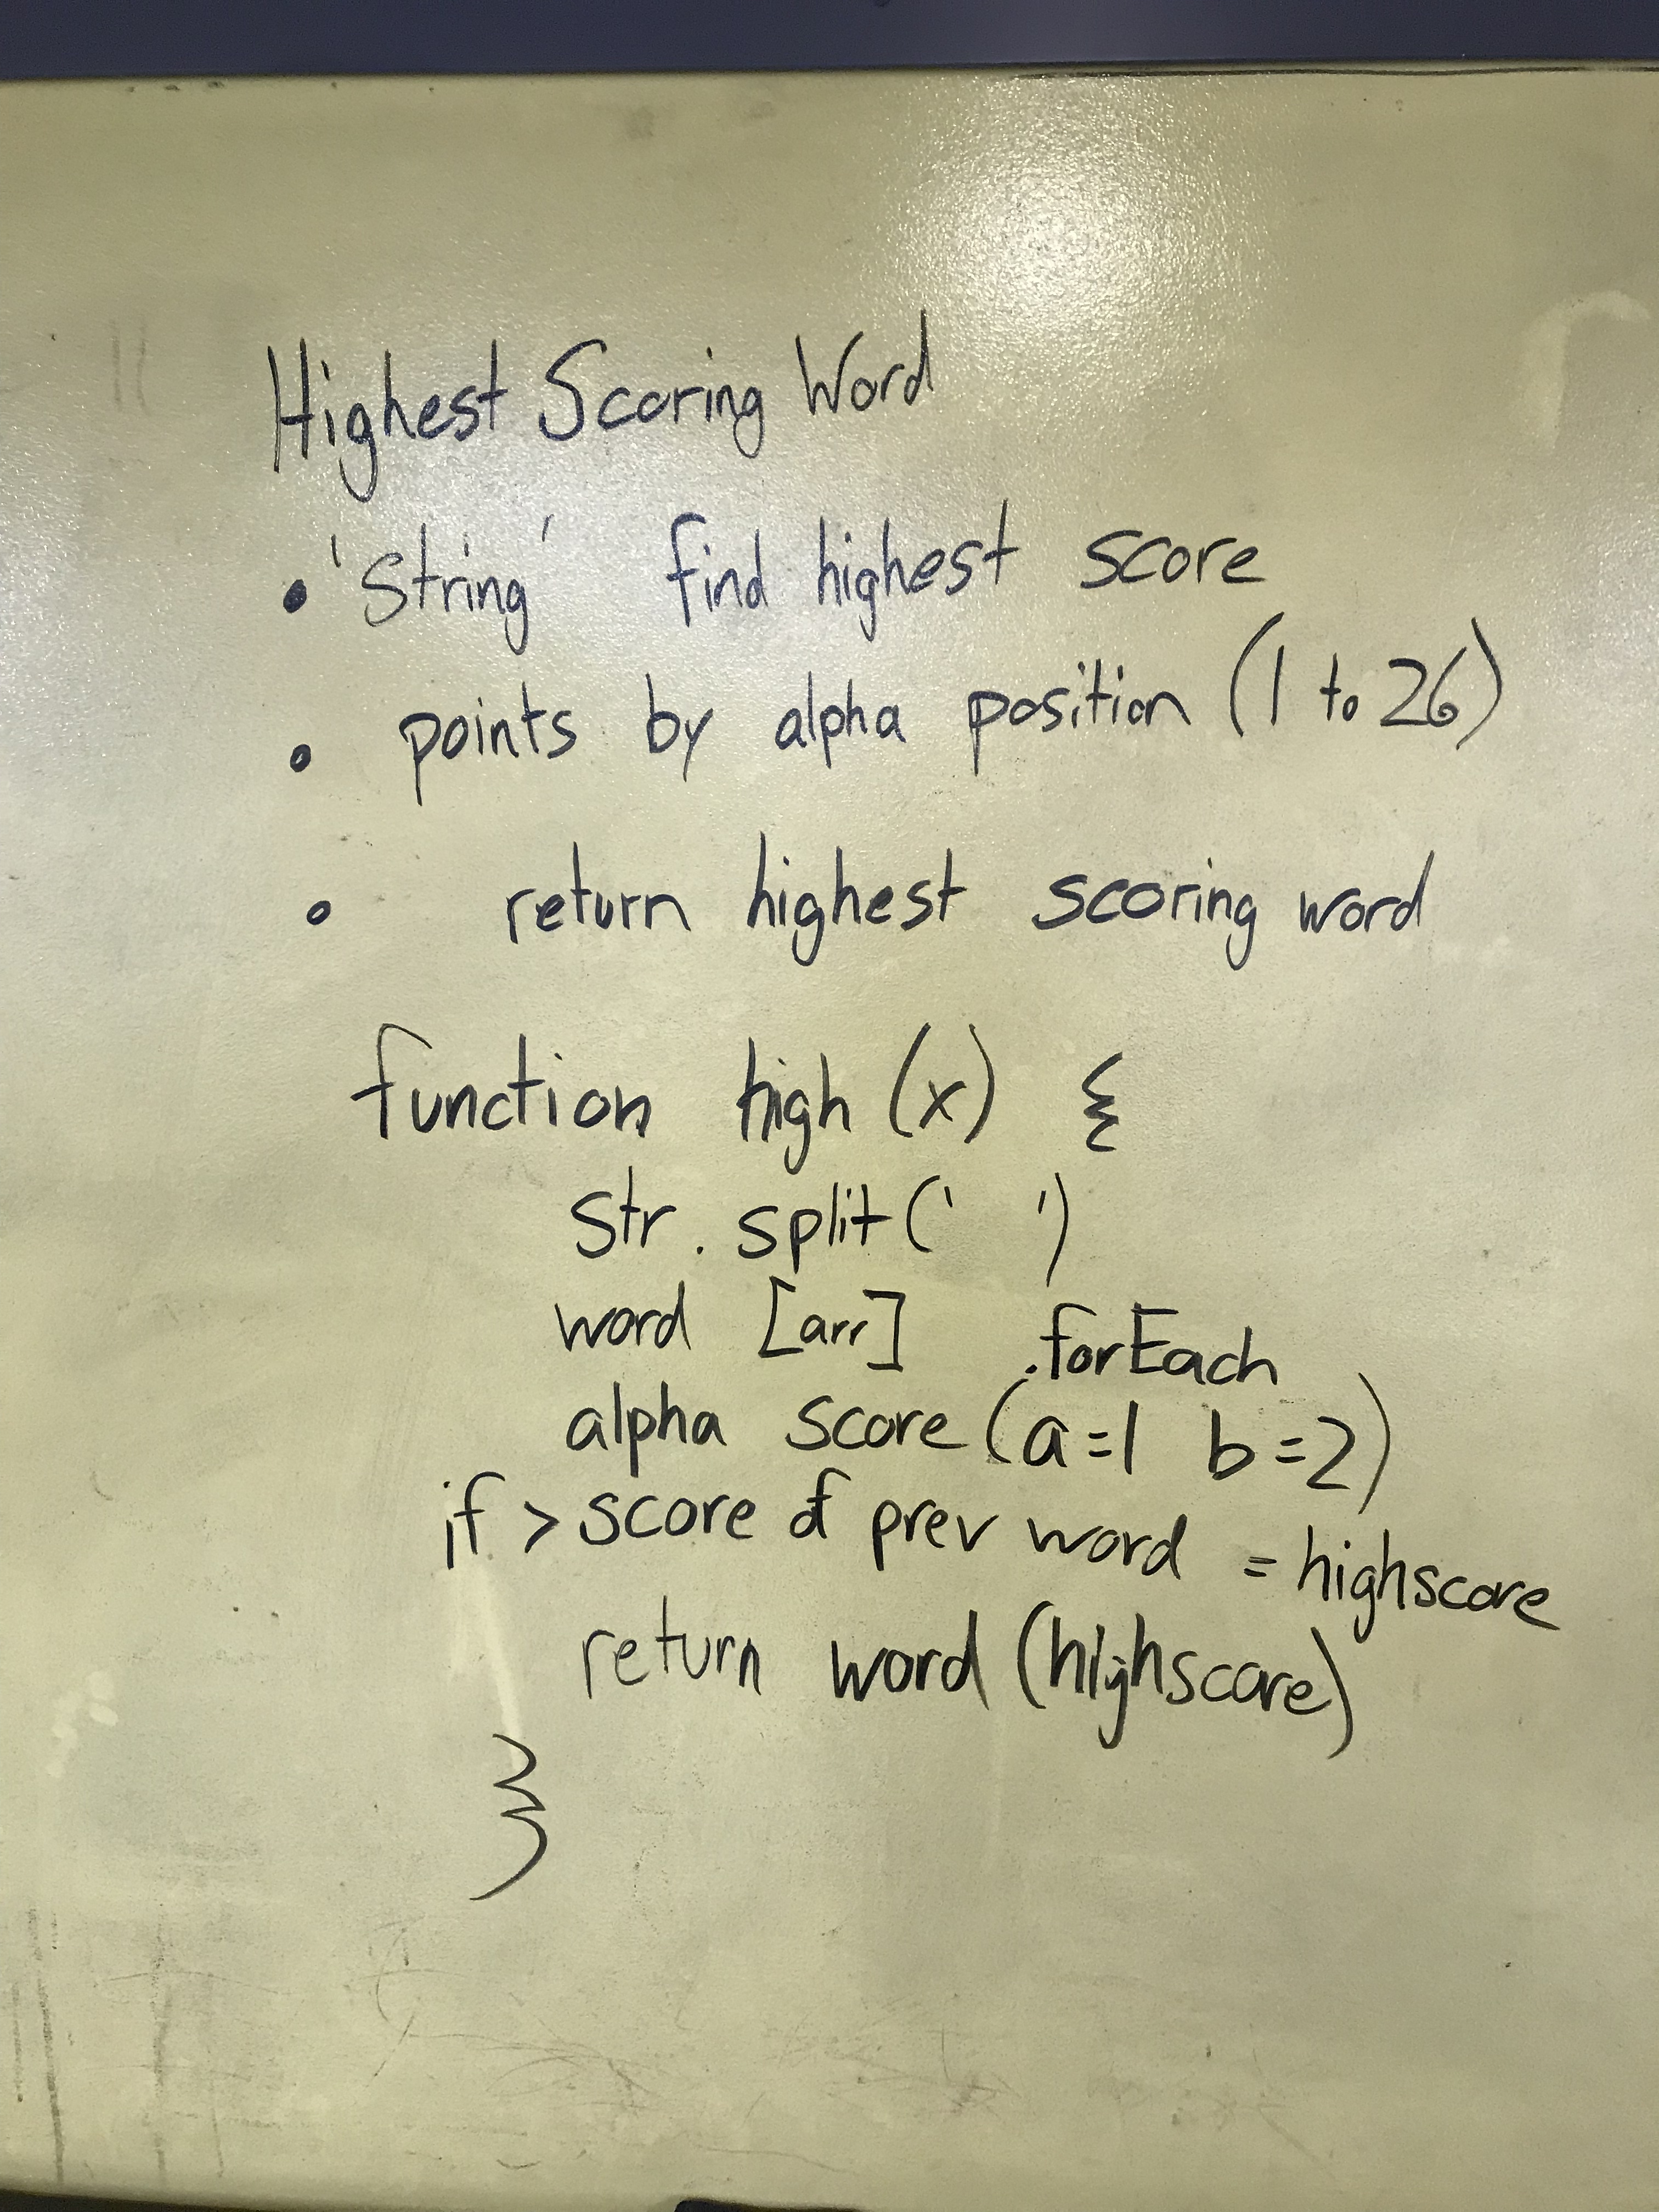 Highest Scoring Word
• 'String' find highest score
• points by alpha position (1 to 26)
• return highest scoring word
function high (x) {
str. split(' ')
word [arr] .forEach
alpha score (a=1 b=2)
if > score of prev word = highscore
return word (highscore)
}